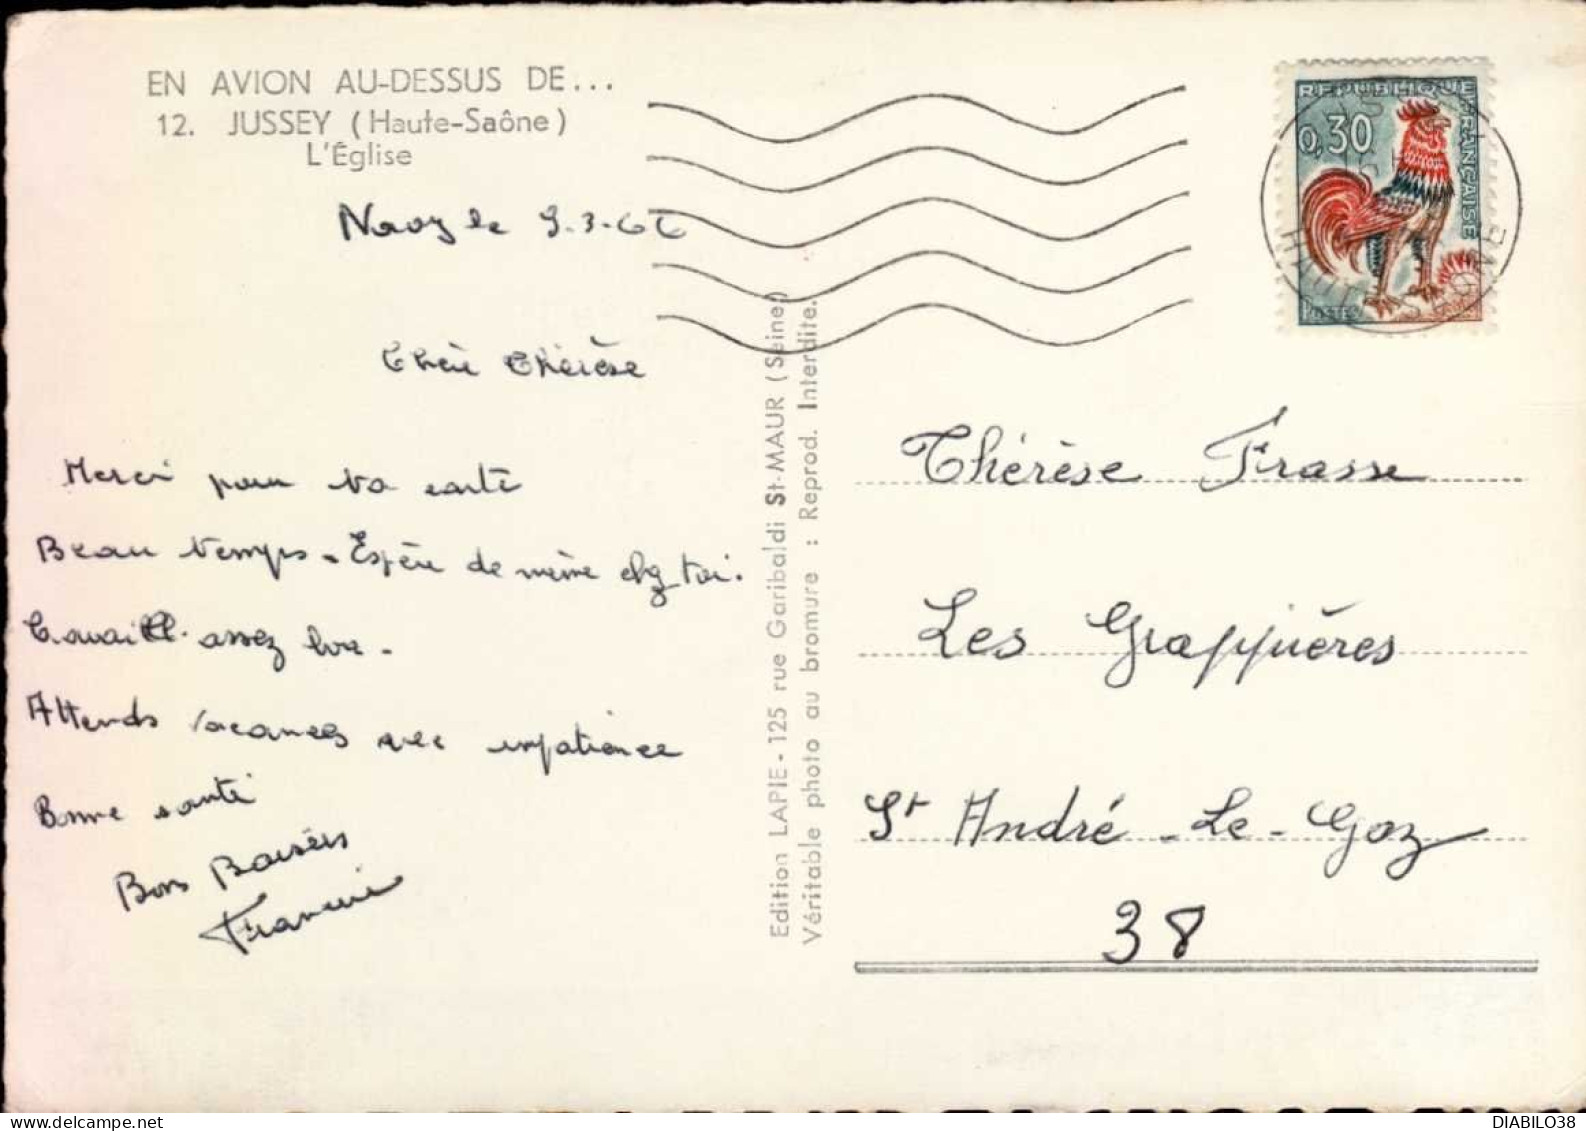 EN AVION AU-DESSUS DE...
12. JUSSEY (Haute-Saône)
L'Église
le 9-3-66
Chère Thérèse
Merci pour ta carte
Beau temps - Espère de même chez toi.
Travaille assez
Attends vacances avec impatience
Bonne santé
Bons Baisers
Francine
Edition LAPIE - 125 rue Garibaldi St-MAUR (Seine)
Véritable photo au bromure : Reprod. Interdite.
REPUBLIQUE FRANÇAISE
0,30
POSTES
Thérèse Frasse
Les Grappières
St André-Le-Gaz
38
DIABILO38